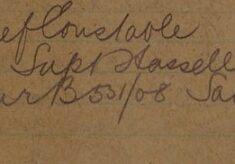 ef Constable
Supt Hassell
ur B 531/08 Sa